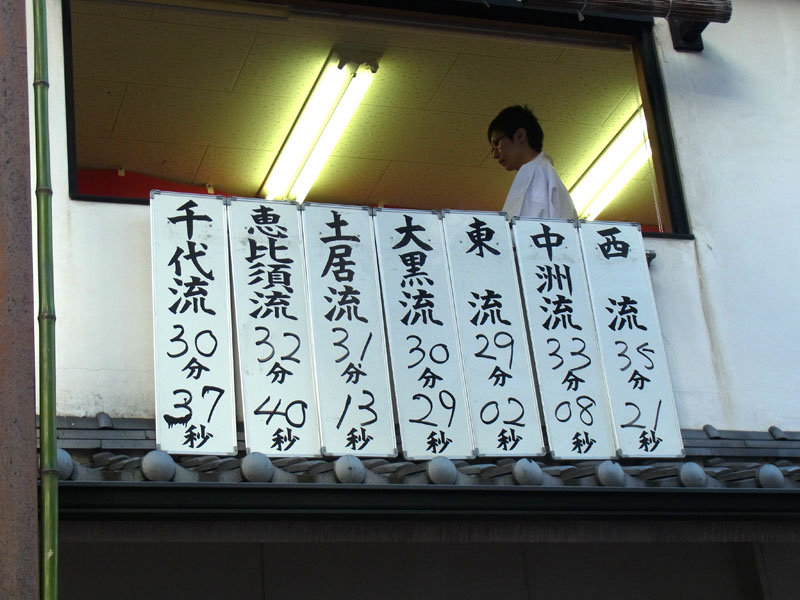 西流
35分
21秒
中洲流
33分
08秒
東流
29分
02秒
大黒流
30分
29秒
土居流
31分
13秒
恵比須流
32分
40秒
千代流
30分
37秒